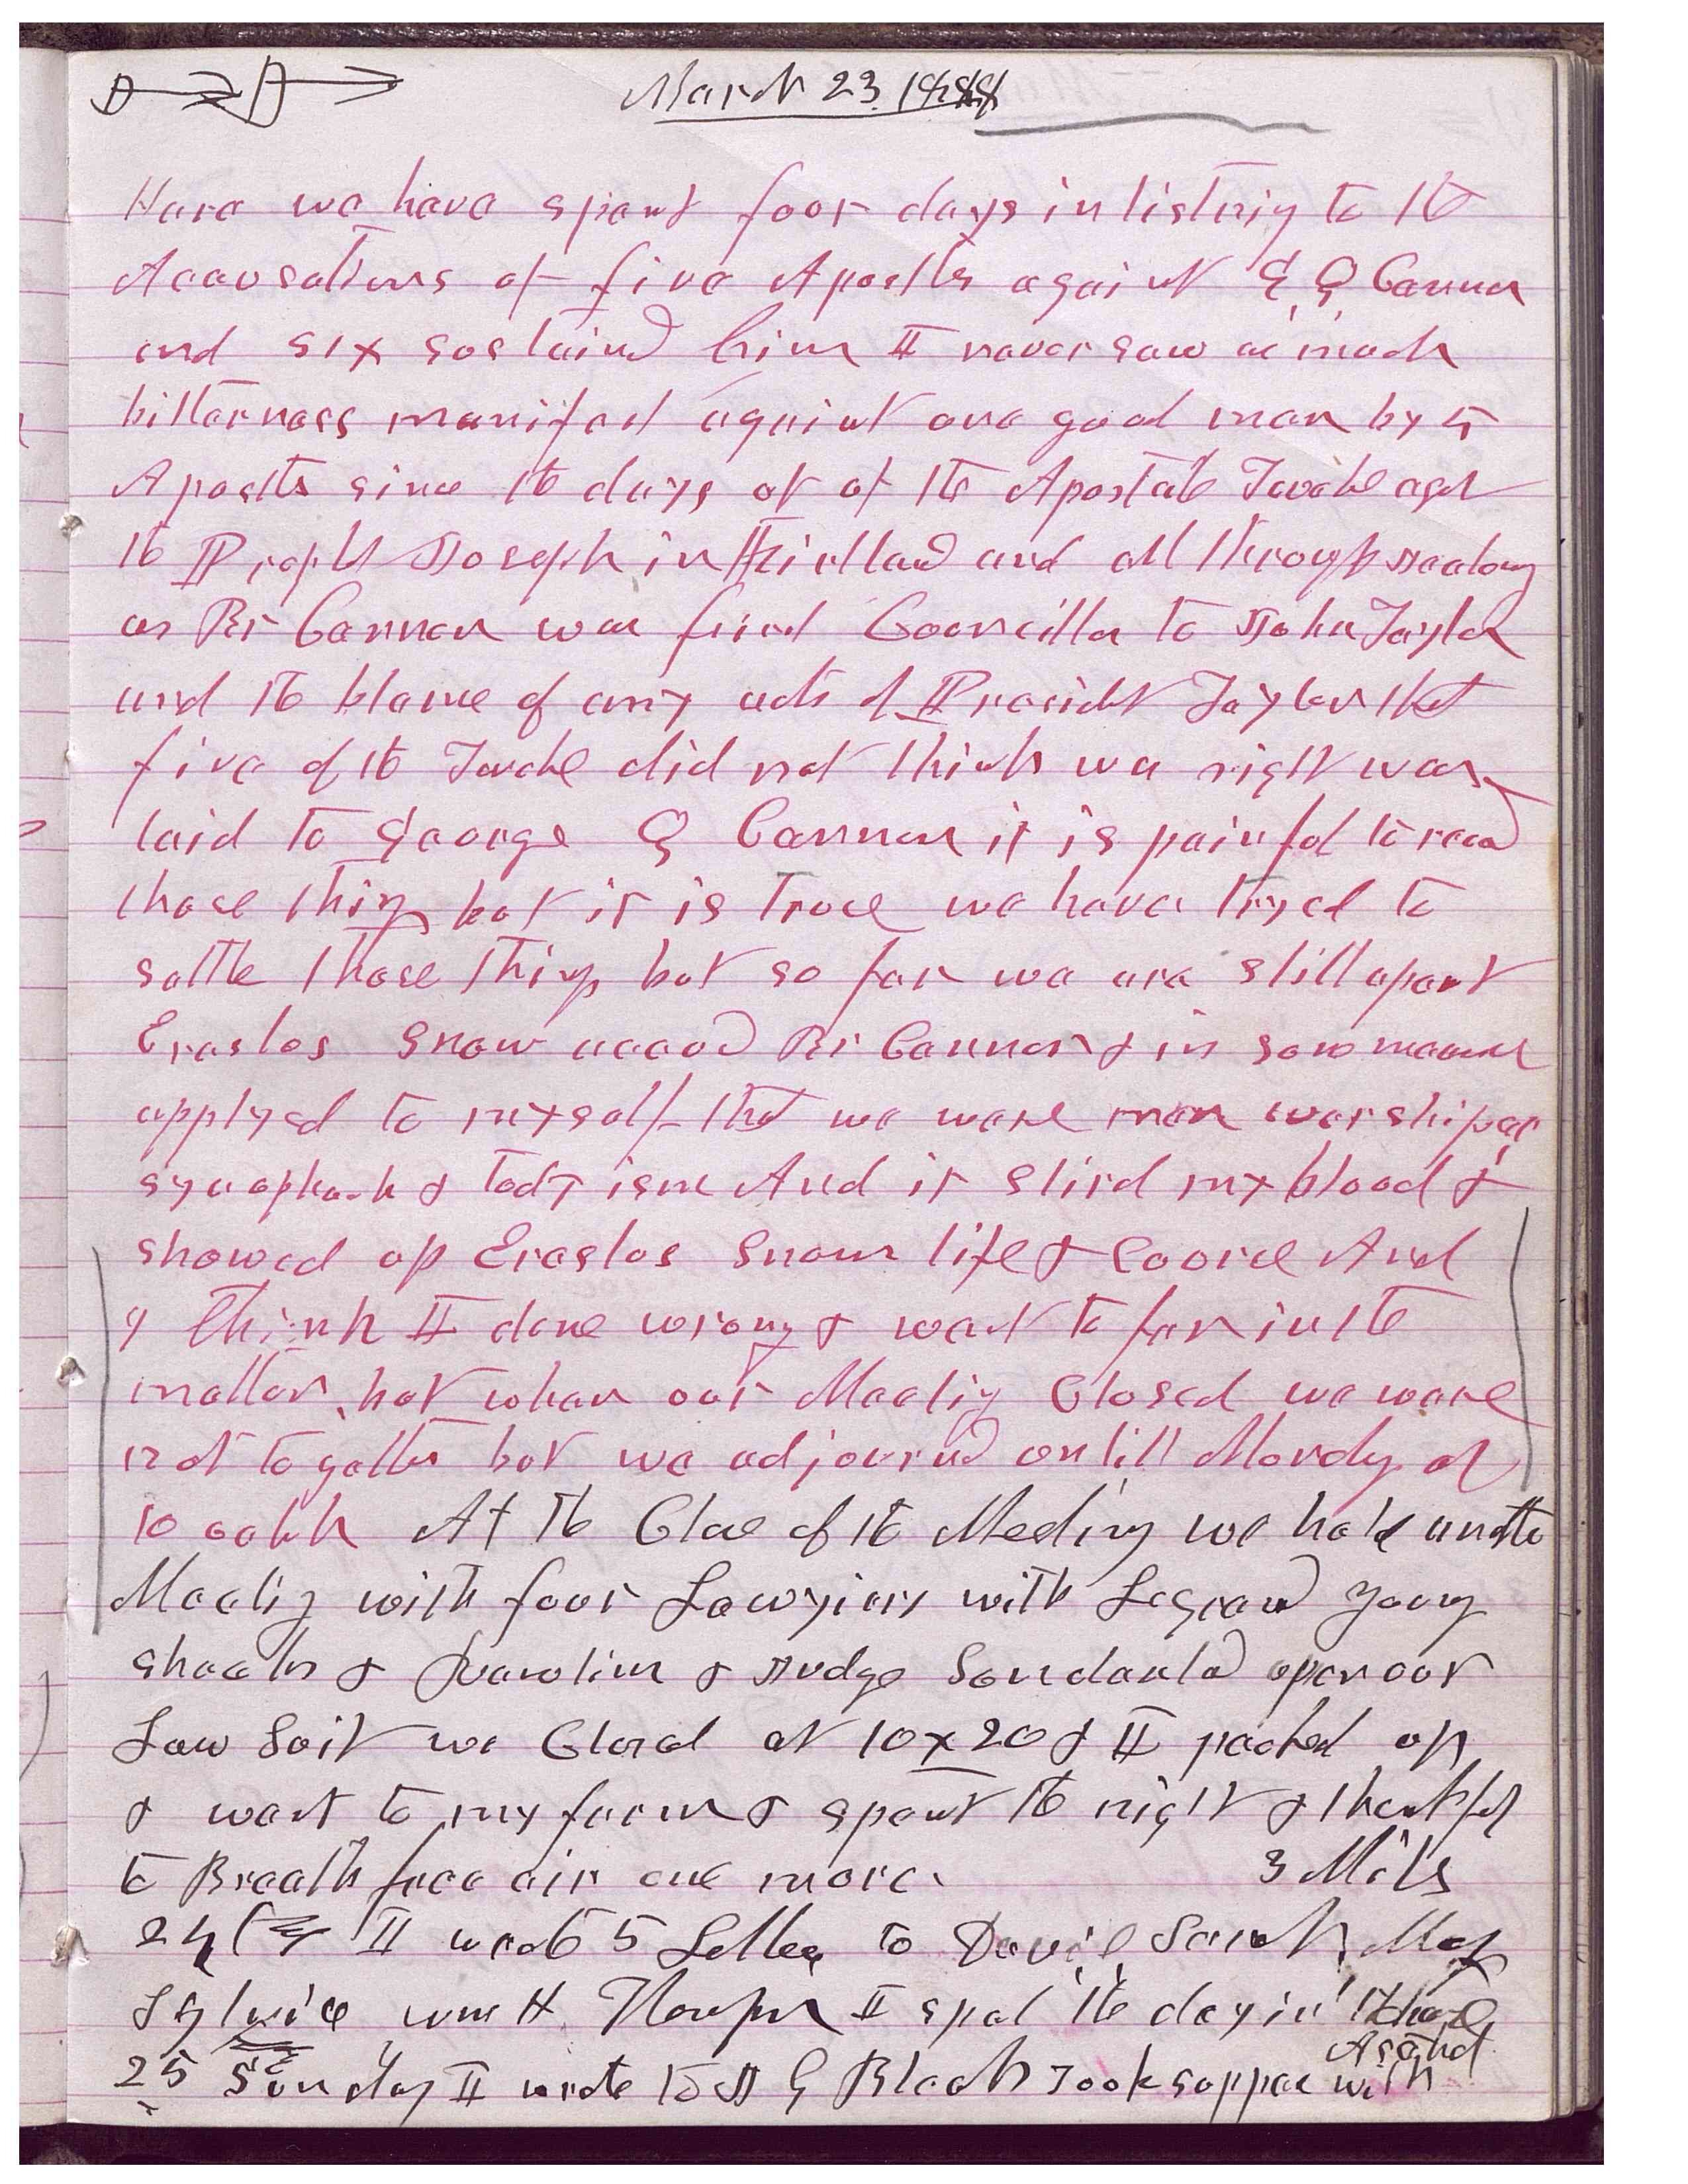 March 23. 1888
Here we have spent four days in listnig to the
Accusations of five Apostles against G Q Cannon
and six sustaind him I never saw as much
bitterness manifest against one good man by 5
Apostls since the days of of the Apostate Twelve agst
the Prophet Joseph in Kirtland and all through Jealousy
as Br Cannon was first Councillor to John Taylor
and the blame of any acts of Presidet Taylor that
five of the Twelve did not think was right was
laid to George Q Cannon it is painful to recod
those things but it is true we have tryed to
settle those things but so far we are still apart
Erastus Snow accused Br Cannon & in some manner
applyed to myself that we were man worshiper
sycophank & todyism And it stird my blood &
showed up Erastus Snow life & Course And
I think I done wrong & went to far in the
matter, but when our Meetig Closed we were
not together but we adjournd untill Mondy at
10 oclok At the Close of the Meeting we held anoth
Meetig with four Lawyiers with Legrand Young
Sheeks & Rawlins & Judge Sundarland upon our
Law Suit we Closed at 10x20 & I packed up
& went to my farm & spent the night & thankful
to Breath free air once more. 3 Mils
24 I wrote 5 Letters to David Sarah May
Sylvia wm H Thompsn I spet the day in the house
25 Sunday I wrote to J G Bleak Took supper with
Asahel